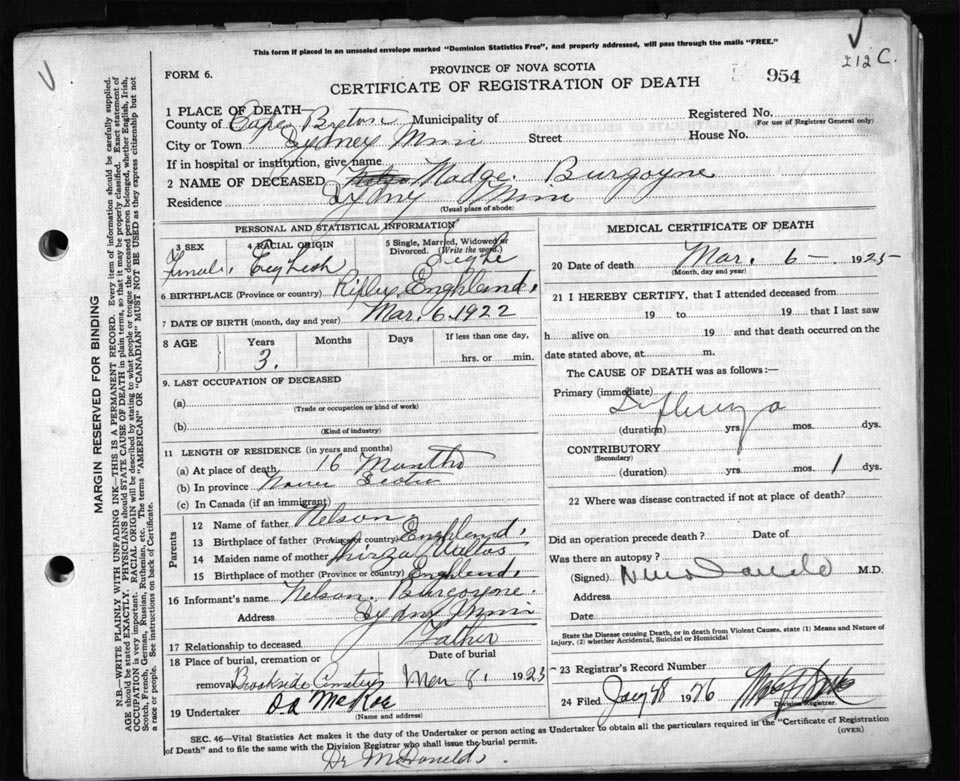 This form if placed in an unsealed envelope marked "Dominion Statistics Free", and properly addressed, will pass through the mails "FREE."
212 C.
FORM 6.
PROVINCE OF NOVA SCOTIA
CERTIFICATE OF REGISTRATION OF DEATH
954
1 PLACE OF DEATH—
County of Cape Breton Municipality of
Registered No.
(For use of Registrar General only)
City or Town Sydney Mini Street House No.
If in hospital or institution, give name
2 NAME OF DECEASED Madge. Burgoyne
Residence Sydny Mini
(Usual place of abode)
MARGIN RESERVED FOR BINDING
N.B.—WRITE PLAINLY WITH UNFADING INK—THIS IS A PERMANENT RECORD. Every item of information should be carefully supplied.
AGE should be stated EXACTLY. PHYSICIANS should STATE CAUSE OF DEATH in plain terms, so that it may be properly classified. Exact statement of
OCCUPATION is very important. RACIAL ORIGIN will be described by stating to what people or tongue the deceased person belonged, whether English, Irish,
Scotch, French, German, Russian, Ruthenian, etc. The terms "AMERICAN" OR "CANADIAN" MUST NOT BE USED as they express citizenship but not
a race or people. See instructions on back of Certificate.
PERSONAL AND STATISTICAL INFORMATION
3 SEX
4 RACIAL ORIGIN
5 Single, Married, Widowed or
Divorced. (Write the word.)
Fmale.
6 BIRTHPLACE (Province or country) Ripley. Enghland.
7 DATE OF BIRTH (month, day and year) Mar. 6. 1922
8 AGE Years Months Days If less than one day,
3. hrs. or min.
9. LAST OCCUPATION OF DECEASED
(a)
(Trade or occupation or kind of work)
(b)
(Kind of industry)
11 LENGTH OF RESIDENCE (in years and months)
(a) At place of death 16 Months
(b) In province Nova Scotia
(c) In Canada (if an immigrant)
Parents
12 Name of father Nelson.
13 Birthplace of father (Province or country) Enghland.
14 Maiden name of mother Thirza
15 Birthplace of mother (Province or country) Enghland.
16 Informant's name Nelson. Burgoyne.
Address Sydny Mini
17 Relationship to deceased Father
18 Place of burial, cremation or
removal Brookside Cemetery
Date of burial
8 1925
19 Undertaker McRae
(Name and address)
MEDICAL CERTIFICATE OF DEATH
20 Date of death Mar. 6 — 1925—
(Month, day and year)
21 I HEREBY CERTIFY, that I attended deceased from
19 to 19 that I last saw
h alive on 19 and that death occurred on the
date stated above, at m.
The CAUSE OF DEATH was as follows:—
Primary (immediate)
(duration) yrs. mos. dys.
CONTRIBUTORY
(Secondary)
(duration) yrs. mos. 1 dys.
22 Where was disease contracted if not at place of death?
Did an operation precede death? Date of
Was there an autopsy?
(Signed) M.D.
Address
Date
State the Disease causing Death, or in death from Violent Causes, state (1) Means and Nature of
Injury, (2) whether Accidental, Suicidal or Homicidal
23 Registrar's Record Number
24 Filed 1926
Division Registrar.
SEC. 46—Vital Statistics Act makes it the duty of the Undertaker or person acting as Undertaker to obtain all the particulars required in the "Certificate of Registration
of Death" and to file the same with the Division Registrar who shall issue the burial permit.
(OVER)
Dr McDonald.